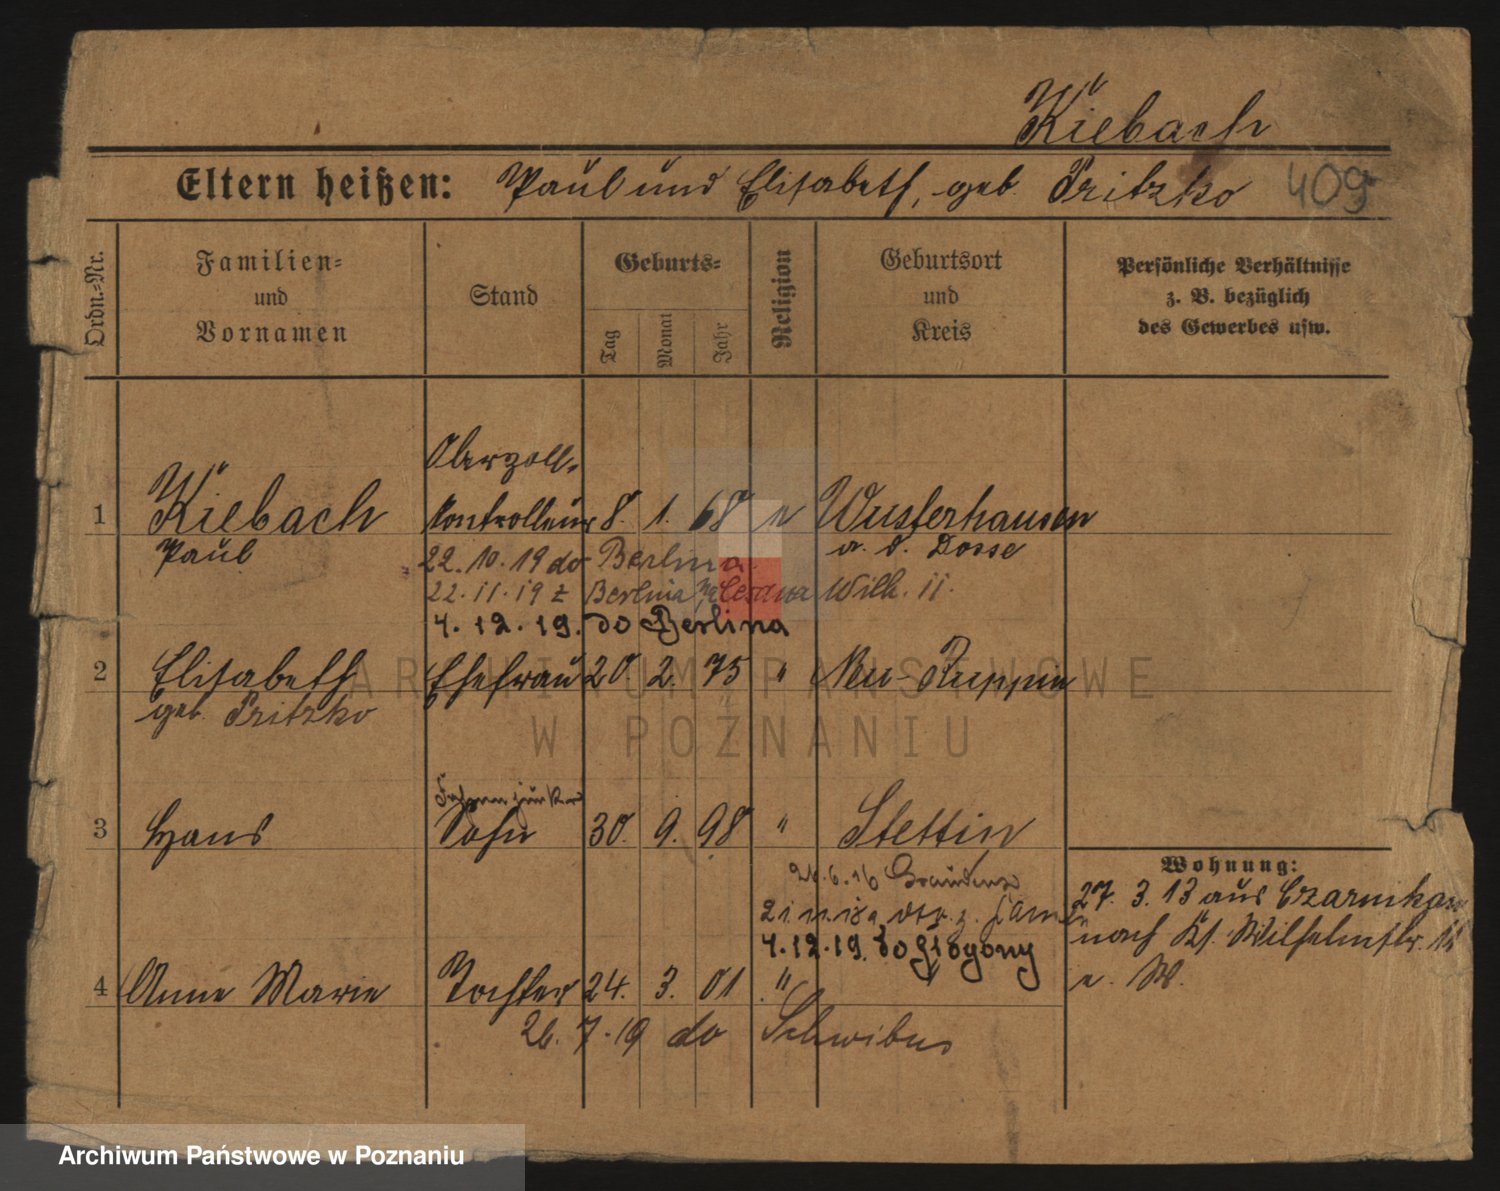 Kiebach
Eltern heißen: Paul und Elisabeth, geb. Pritzko 409
Ordn.-Nr.
Familien-
und
Vornamen
Stand
Geburts-
Tag
Monat
Jahr
Religion
Geburtsort
und
Kreis
Persönliche Verhältnisse
z. B. bezüglich
des Gewerbes usw.
Oberzoll-
1 Kiebach Kontrolleur 8. 1. 68 e Wusterhausen
Paul a. d. Dosse
22.10.19 do Berlina
22.11.19 z Berlina Wilh. 11.
4.12.19. do Berlina
2 Elisabeth Ehefrau 20. 2. 75 " Neu-Ruppin
geb. Pritzko
Fahnenjunker
3 Hans Sohn 30. 9. 98 " Stettin
26.6.16 Graudenz
4.12.19. do Głogony
4 Anne Marie Tochter 24. 3. 01 "
26.7.19 do Schwibus
Wohnung:
27. 3. 13 aus Czarnikau
nach Kl. Wilhelmstr.
ARCHIWUM PAŃSTWOWE
W POZNANIU
Archiwum Państwowe w Poznaniu